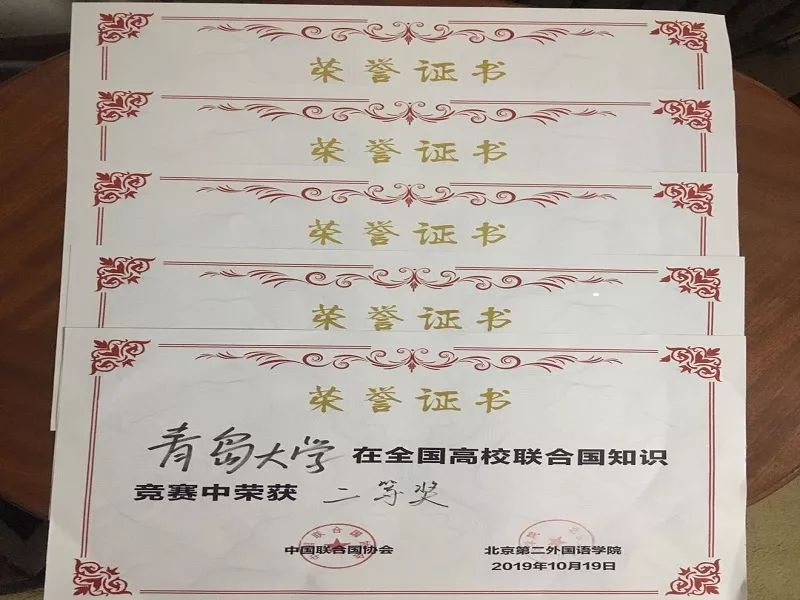 荣誉证书
荣誉证书
荣誉证书
荣誉证书
荣誉证书
青岛大学 在全国高校联合国知识
竞赛中荣获 二等奖
中国联合国协会 北京第二外国语学院
2019年10月19日